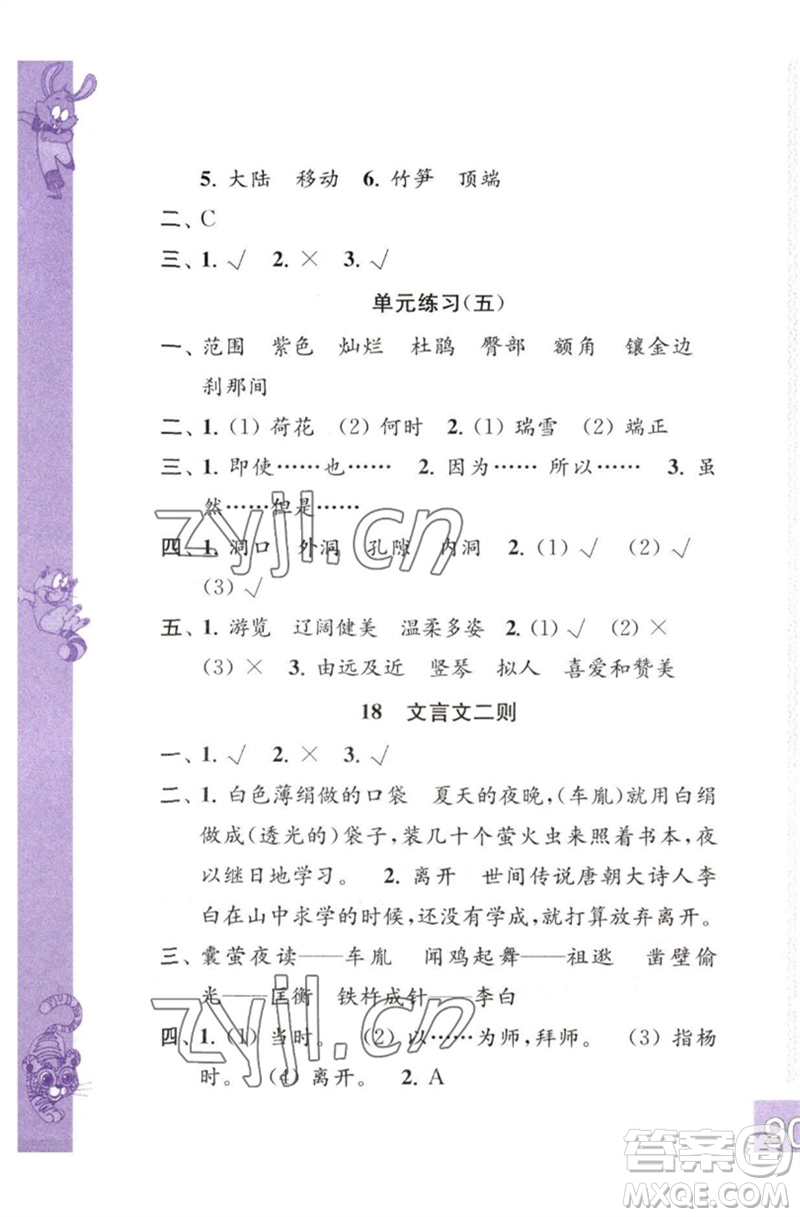 5. 大陆 移动 6. 竹笋 顶端
二、C
三、1. √ 2. × 3. √
单元练习(五)
一、范围 紫色 灿烂 杜鹃 臀部 额角 镶金边
刹那间
二、1. (1) 荷花 (2) 何时 2. (1) 瑞雪 (2) 端正
三、1. 即使……也…… 2. 因为…… 所以…… 3. 虽
然……但是……
四、1. 洞口 外洞 孔隙 内洞 2. (1) √ (2) √
(3) √
五、1. 游览 辽阔健美 温柔多姿 2. (1) √ (2) ×
(3) × 3. 由远及近 竖琴 拟人 喜爱和赞美
18 文言文二则
一、1. √ 2. × 3. √
二、1. 白色薄绢做的口袋 夏天的夜晚,(车胤)就用白绢
做成(透光的)袋子,装几十个萤火虫来照着书本,夜
以继日地学习。 2. 离开 世间传说唐朝大诗人李
白在山中求学的时候,还没有学成,就打算放弃离开。
三、囊萤夜读——车胤 闻鸡起舞——祖逖 凿壁偷
光——匡衡 铁杵成针——李白
四、1. (1) 当时。 (2) 以……为师,拜师。 (3) 指杨
时。 (4) 离开。 2. A
zyjl.cn
zyjl.cn
答案卷
MXQE.COM